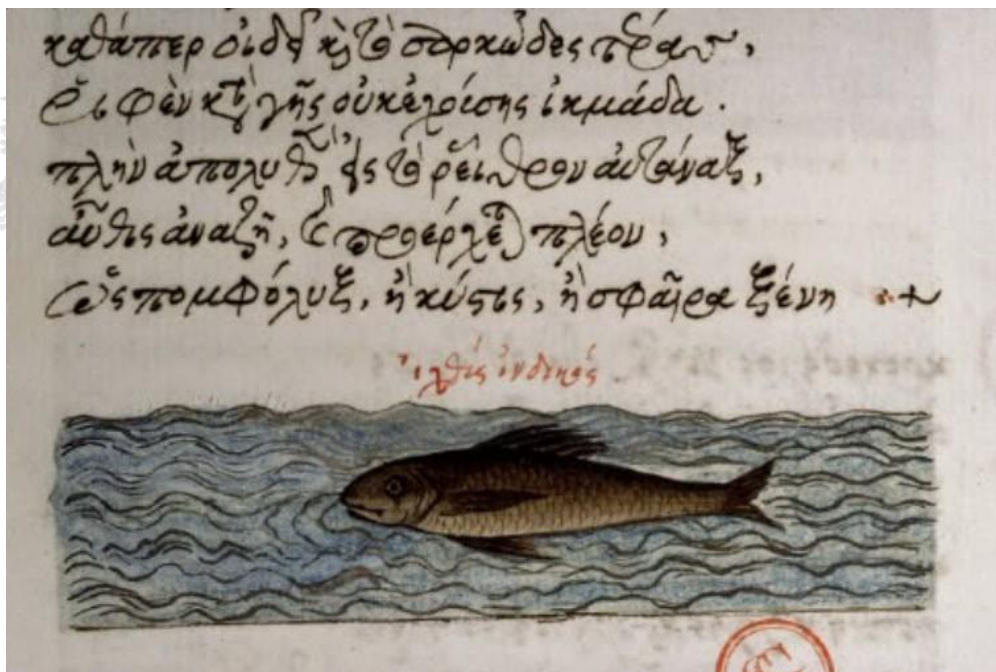 καθάπερ οὐδὲ καὶ τὸ σαρκῶδες
γῆς οὐκ ἐχούσης ἰκμάδα.
πλὴν ἀπολυθεὶς εἰς τὸ ῥεῖθρον αὐτάναξ,
αὖθις ἀναζῇ, καὶ προέρχεται πλέον,
ὡς πομφόλυξ, ἢ κύστις, ἢ σφαῖρα ξένη
ἰχθὺς ἰνδικός